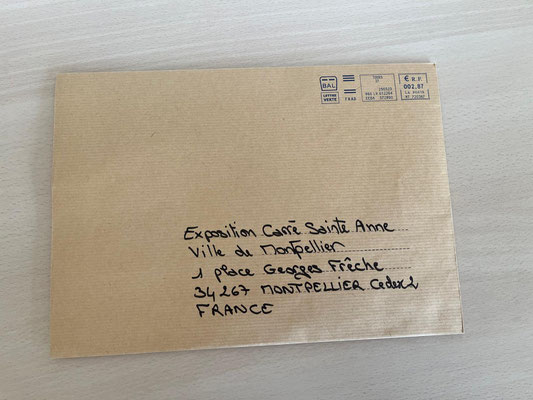 BAL
LETTRE
VERTE
TOURS
€ R.F.
002,87
LA POSTE
Exposition Carré Sainte Anne
Ville de Montpellier
1 place Georges Frêche
34267 MONTPELLIER Cedex 2
FRANCE